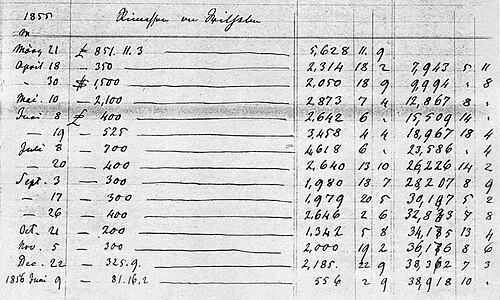 1855
März 21 £ 851.11.3 5,628 11. 9
April 18 — 350 2,314 18 2 7,943 5 11
— 30 $ 1,500 2,050 18 9 9,994 . 8
Mai. 10 — 2,100 2,873 7 4 12,867 8 .
Juni 8 £ 400 2,642 6 . 15,509 14 .
— 19 — 525 3,458 4 4 18,967 18 4
Juli 8 — 700 4,618 6 . 23,586 . 4
— 20 — 400 2,640 13 10 26,226 14 2
Sept. 3 — 300 1,980 18 7 28,207 8 9
— 17 — 300 1,979 20 5 30,187 5 2
— 26 — 400 2,646 2 6 32,833 7 8
Oct. 21 — 200 1,342 5 8 34,175 13 4
Nov. 5 — 300 2,000 19 2 36,176 8 6
Dec. 22 — 325.9. 2,185. 22 9 38,362 7 3
1856 Juni 9 — 81.16.2 556 2 9 38,918 10 .